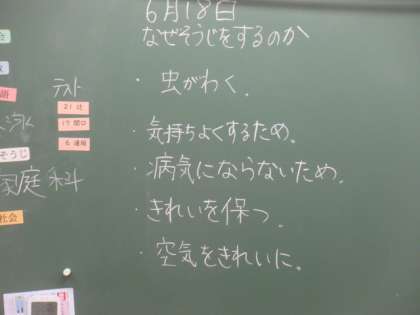 6月18日
なぜそうじをするのか
・虫がわく。
・気持ちよくするため。
・病気にならないため。
・きれいを保つ。
・空気をきれいに。
テスト
そうじ
家庭科
社会